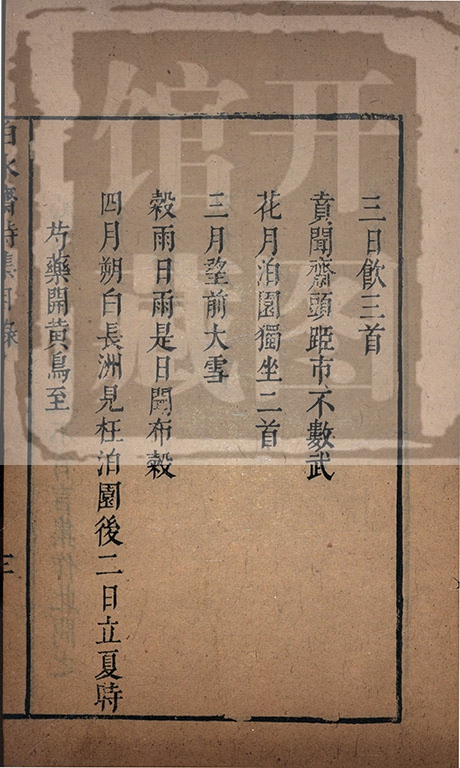 三日飲三首
賁聞齋頭距市不數武
花月泊園獨坐二首
三月望前大雪
穀雨日雨是日聞布穀
四月朔白長洲見枉泊園後二日立夏時
芍藥開黃鳥至
白水齋詩集目錄
三
开图
馆藏